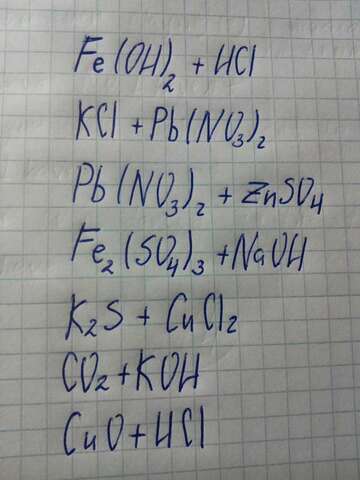 Fe(OH)₂ + HCl
KCl + Pb(NO₃)₂
Pb(NO₃)₂ + ZnSO₄
Fe₂(SO₄)₃ + NaOH
K₂S + CuCl₂
CO₂ + KOH
CuO + HCl